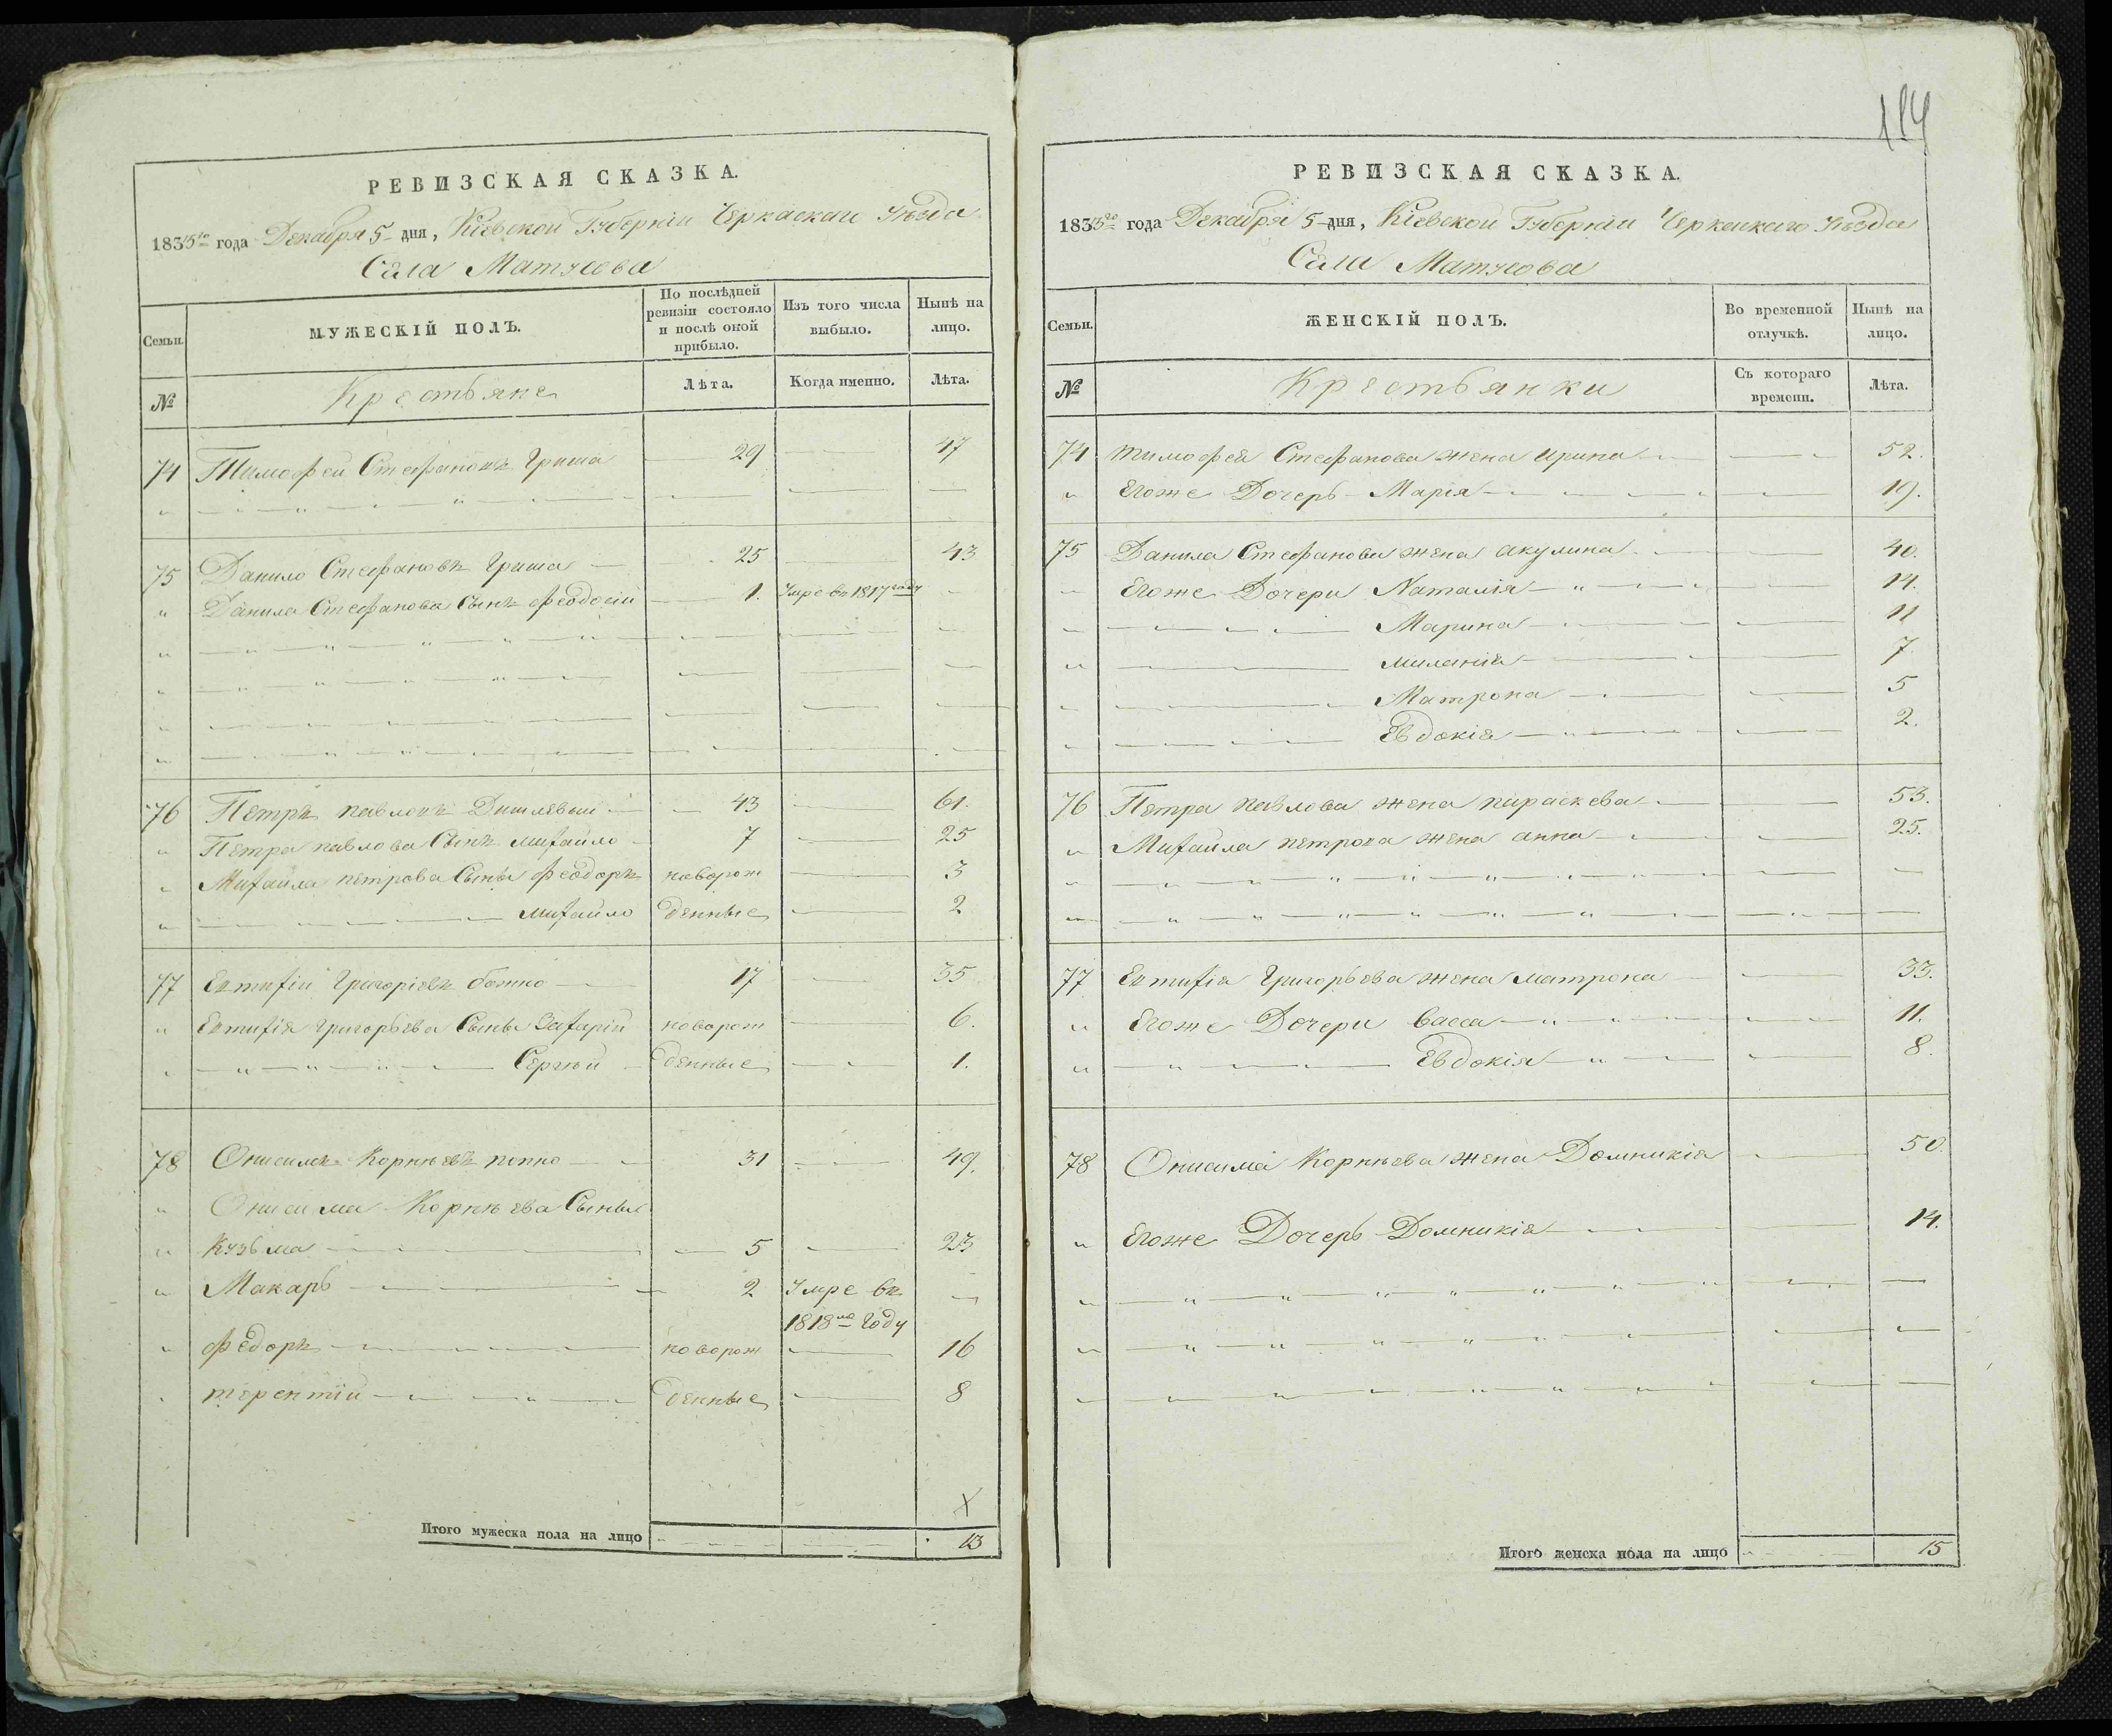 184
РЕВИЗСКАЯ СКАЗКА.
1835го года Декабря 5 дня, Кіевской Губерніи Черкаскаго Уѣзда
Села Матусова
Семьи.
МУЖЕСКІЙ ПОЛЪ.
По послѣдней ревизіи состояло и послѣ оной прибыло.
Изъ того числа выбыло.
Нынѣ на лицо.
№
Крестьяне
Лѣта.
Когда именно.
Лѣта.
74 Тимофей Стефановъ Гриша 29 47
75 Данило Стефановъ Гриша 25 43
Данила Стефанова Сынъ Феодосій 1. Умре въ 1817 году
76 Петръ павловъ 43 61.
Петра павлова Сынъ михайло 7 25
Михайла петрова Сыны феодоръ новорож 3
михайло денные 2
77 Евтихій Григоріевъ божко 17 35
Евтихія григорьева Сыны Захарій новорож 6.
Сергѣй денные 1.
78 Онисимъ Корнѣевъ попко 31 49.
Онисима Корнѣева Сыны
Кузьма 5 23
Макаръ 2 Умре въ
1818мъ Году
Федоръ новорож 16
терентій денные 8
Х
Итого мужеска пола на лицо 13
РЕВИЗСКАЯ СКАЗКА.
1835го года Декабря 5 дня, Кіевской Губерніи Черкаскаго Уѣзда
Села Матусова
Семьи.
ЖЕНСКІЙ ПОЛЪ.
Во временной отлучкѣ.
Нынѣ на лицо.
№
Крестьянки
Съ котораго времени.
Лѣта.
74 тимофея Стефанова жена ирина 52.
Егоже Дочерь Марія 19.
75 Данила Стефанова жена акулина 40.
Егоже Дочери Наталія 14.
Марина 11
миланія 7
Матрона 5
Евдокія 2.
76 Петра павлова жена параскева 53.
Михайла петрова жена анна 25.
77 Евтихія Григорьева жена матрона 33.
Егоже Дочери васса 11.
Евдокія 8.
78 Онисима Корнѣева жена Домникія 50
Егоже Дочерь Домникія 14.
Итого женска пола на лицо 15